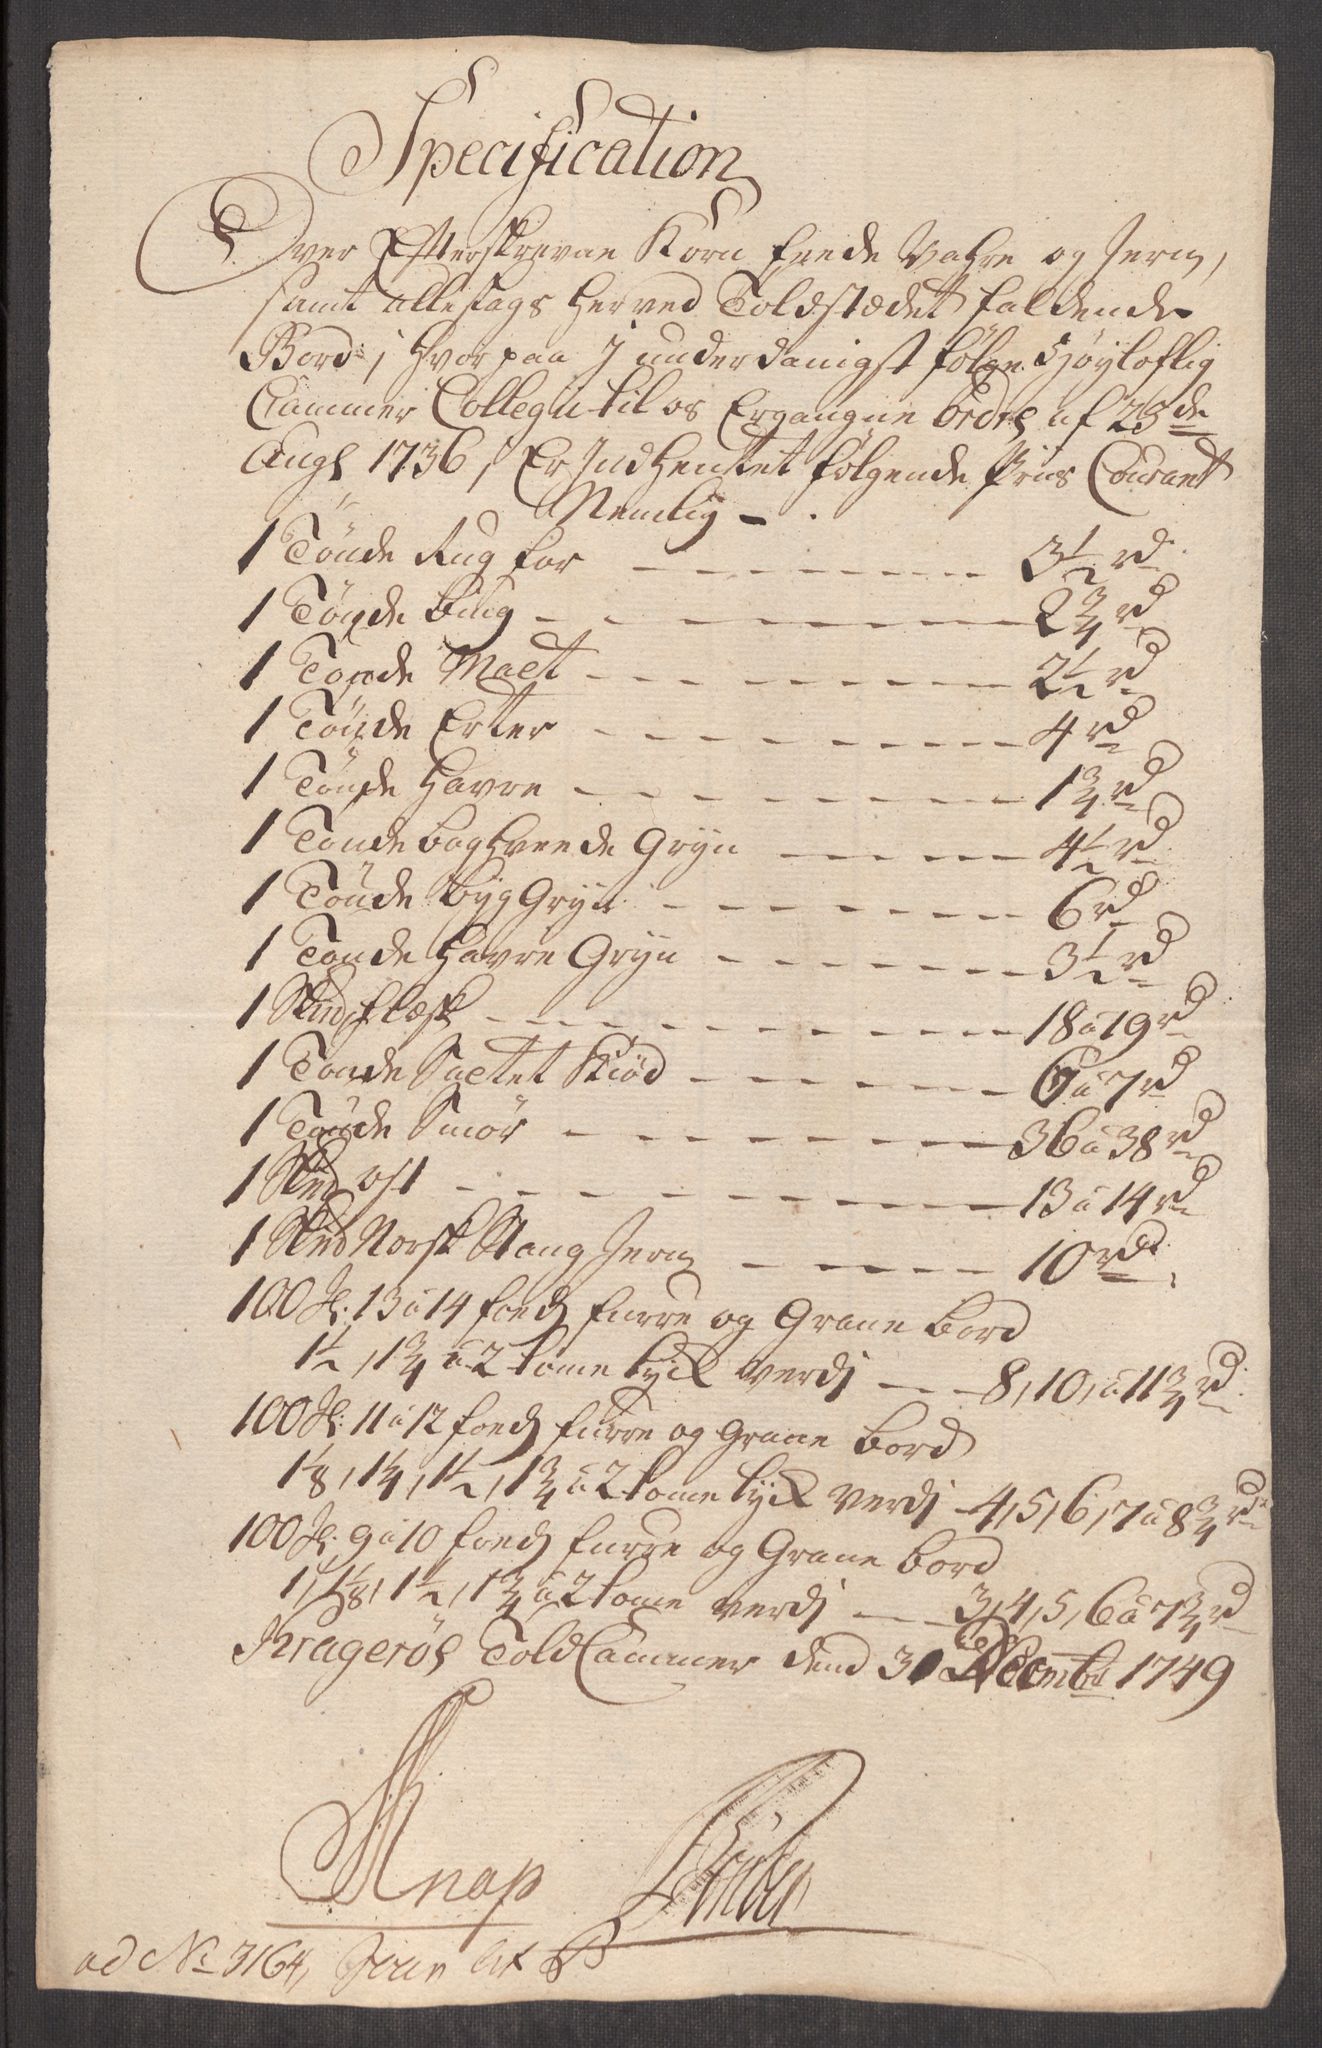 Specification
Over Efterskrevne Korn Feede Vahre og Jern,
samt alleslags herved Toldstædet faldende
Bord, hvorpaa j underdanigst følge Høyloflig
Cammer Collegii til os Ergangne Ordre af 23de
Aug 1736, Er Indhentet følgende Priis Courant
Nemlig -
1 Tønde Rug for - - - 3½ rd
1 Tønde Biug - - - 2¾ rd
1 Tønde Malt - - - 2½ rd
1 Tønde Erter - - - 4 rd
1 Tønde Havre - - - 1¾ rd
1 Tønde boghveede Gryn - - - 4½ rd
1 Tønde byg Gryn - - - 6 rd
1 Tønde havre Gryn - - - 3½ rd
1 Skpd flæsk - - - 18 a 19 rd
1 Tønde Saltet Kiød - - - 6 a 7 rd
1 Tønde Smør - - - 36 a 38 rd
1 Skpd ost - - - 13 a 14 rd
1 Skpd Norsk Stang Jern - - - 10 rd
100 St: 13 a 14 foeds furre og Grane bord
1½, 1¾ a 2 tome tyck verdj - - 8, 10, a 11¾ rd
100 St: 11 a 12 foeds furre og Grane bord
1⅛, 1¼, 1½, 1¾ a 2 tome tyck verdj - 4, 5, 6, 7 a 8¾ rd
100 St: 9 a 10 foeds furre og Grane bord
1, 1⅛, 1½, 1¾ a 2 tome verdj - - 3, 4, 5, 6 a 7¾ rd
Kragerøe Told Cammer dend 31 Decembr 1749
Knap
ad No 3164,